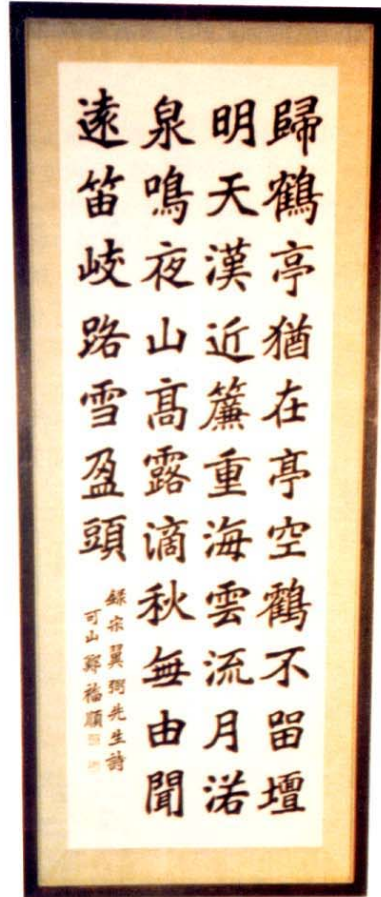 歸鶴亭猶在亭空鶴不留壇
明天漢近簾重海雲流月落
泉鳴夜山髙露滴秋無由聞
遠笛岐路雪盈頭
錄宋翼弼先生詩
可山鄭福順